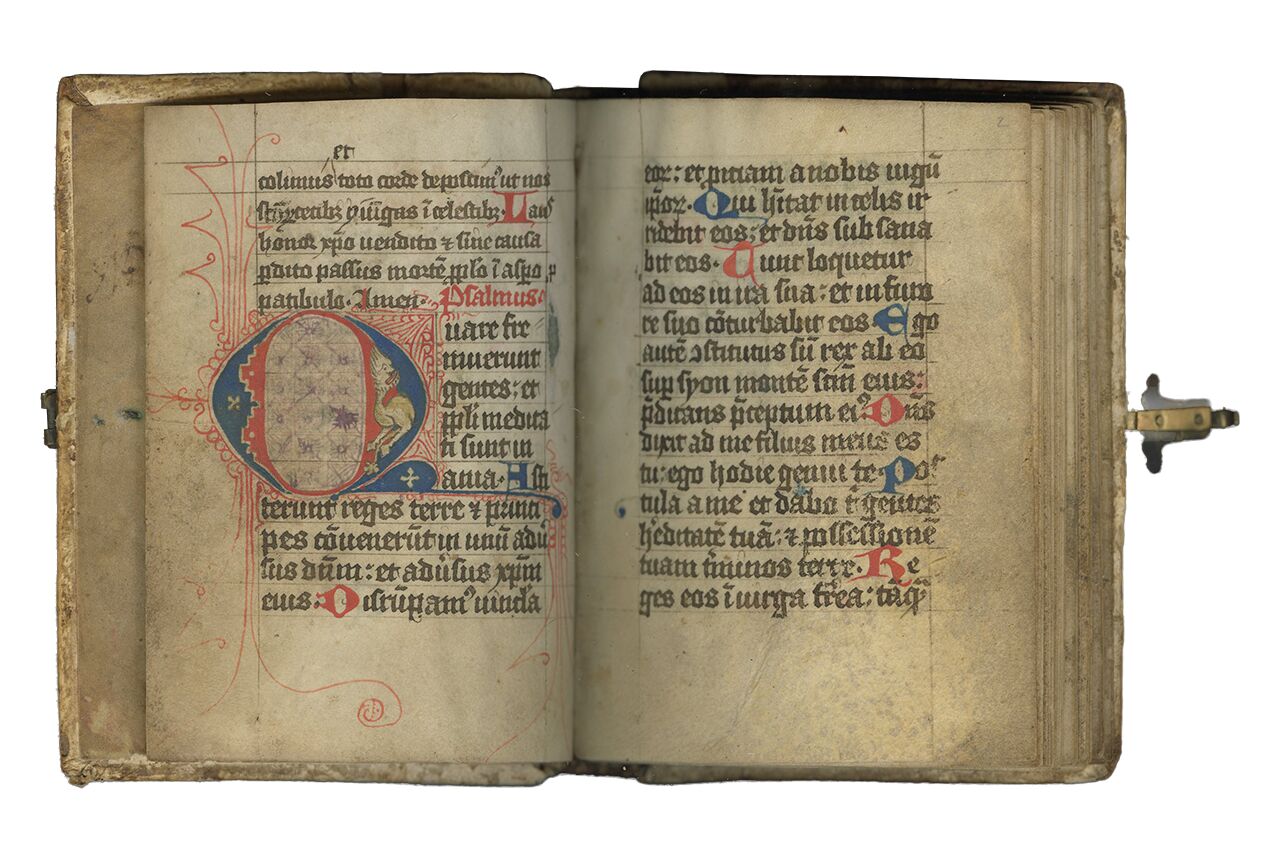 et
colimus toto corde deposcim⁹ ut nos
iūgas ī celestibꝫ. Laus
honor xp̄o uendito ⁊ sine causa
ꝓdito passus mortē ꝓ pp̄lo ī aspo
patibulo. Amen. Psalmus.
Quare fre
muerunt
gentes: et
pp̄li medita
ti sunt in
ania. Asti
terunt reges terre ⁊ princi
pes cōuenerūt in unū adū
sus dn̄m: et adūsus xp̄m
eius: Disrūpam⁹ uincla
2
eoꝝ: et ꝓiciam a nobis iugū
ip̄oꝝ. Qui hītat in celis ir
ridebit eos: et dn̄s subsanna
bit eos. Tunc loquetur
ad eos in ira sua: et in furo
re suo cōturbabit eos. Ego
autē ꝯstitutus sū rex ab eo
sup syon montē sc̄m eius:
p̄dicans p̄ceptum ei⁹. Dn̄s
dixit ad me filius meus es
tu: ego hodie genui te. Pos
tula a me et dabo t̄ gentes
h̓editatē tuā: ⁊ possessionē
tuam t̄minos terre. Re
ges eos ī uirga fr̄ea: tāqͣ